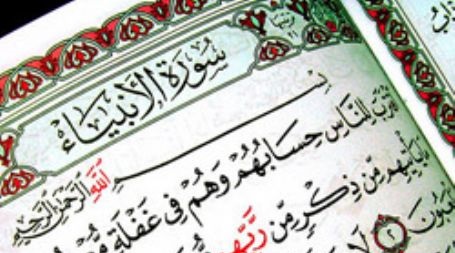 سُورَةُ الْأَنبِيَاءِ
بِسْمِ اللَّهِ الرَّحْمَٰنِ الرَّحِيمِ
لِلنَّاسِ حِسَابُهُمْ وَهُمْ فِى غَفْلَةٍ
يَأْتِيهِم مِّن ذِكْرٍ مِّن رَّبِّهِم
٢ لَا